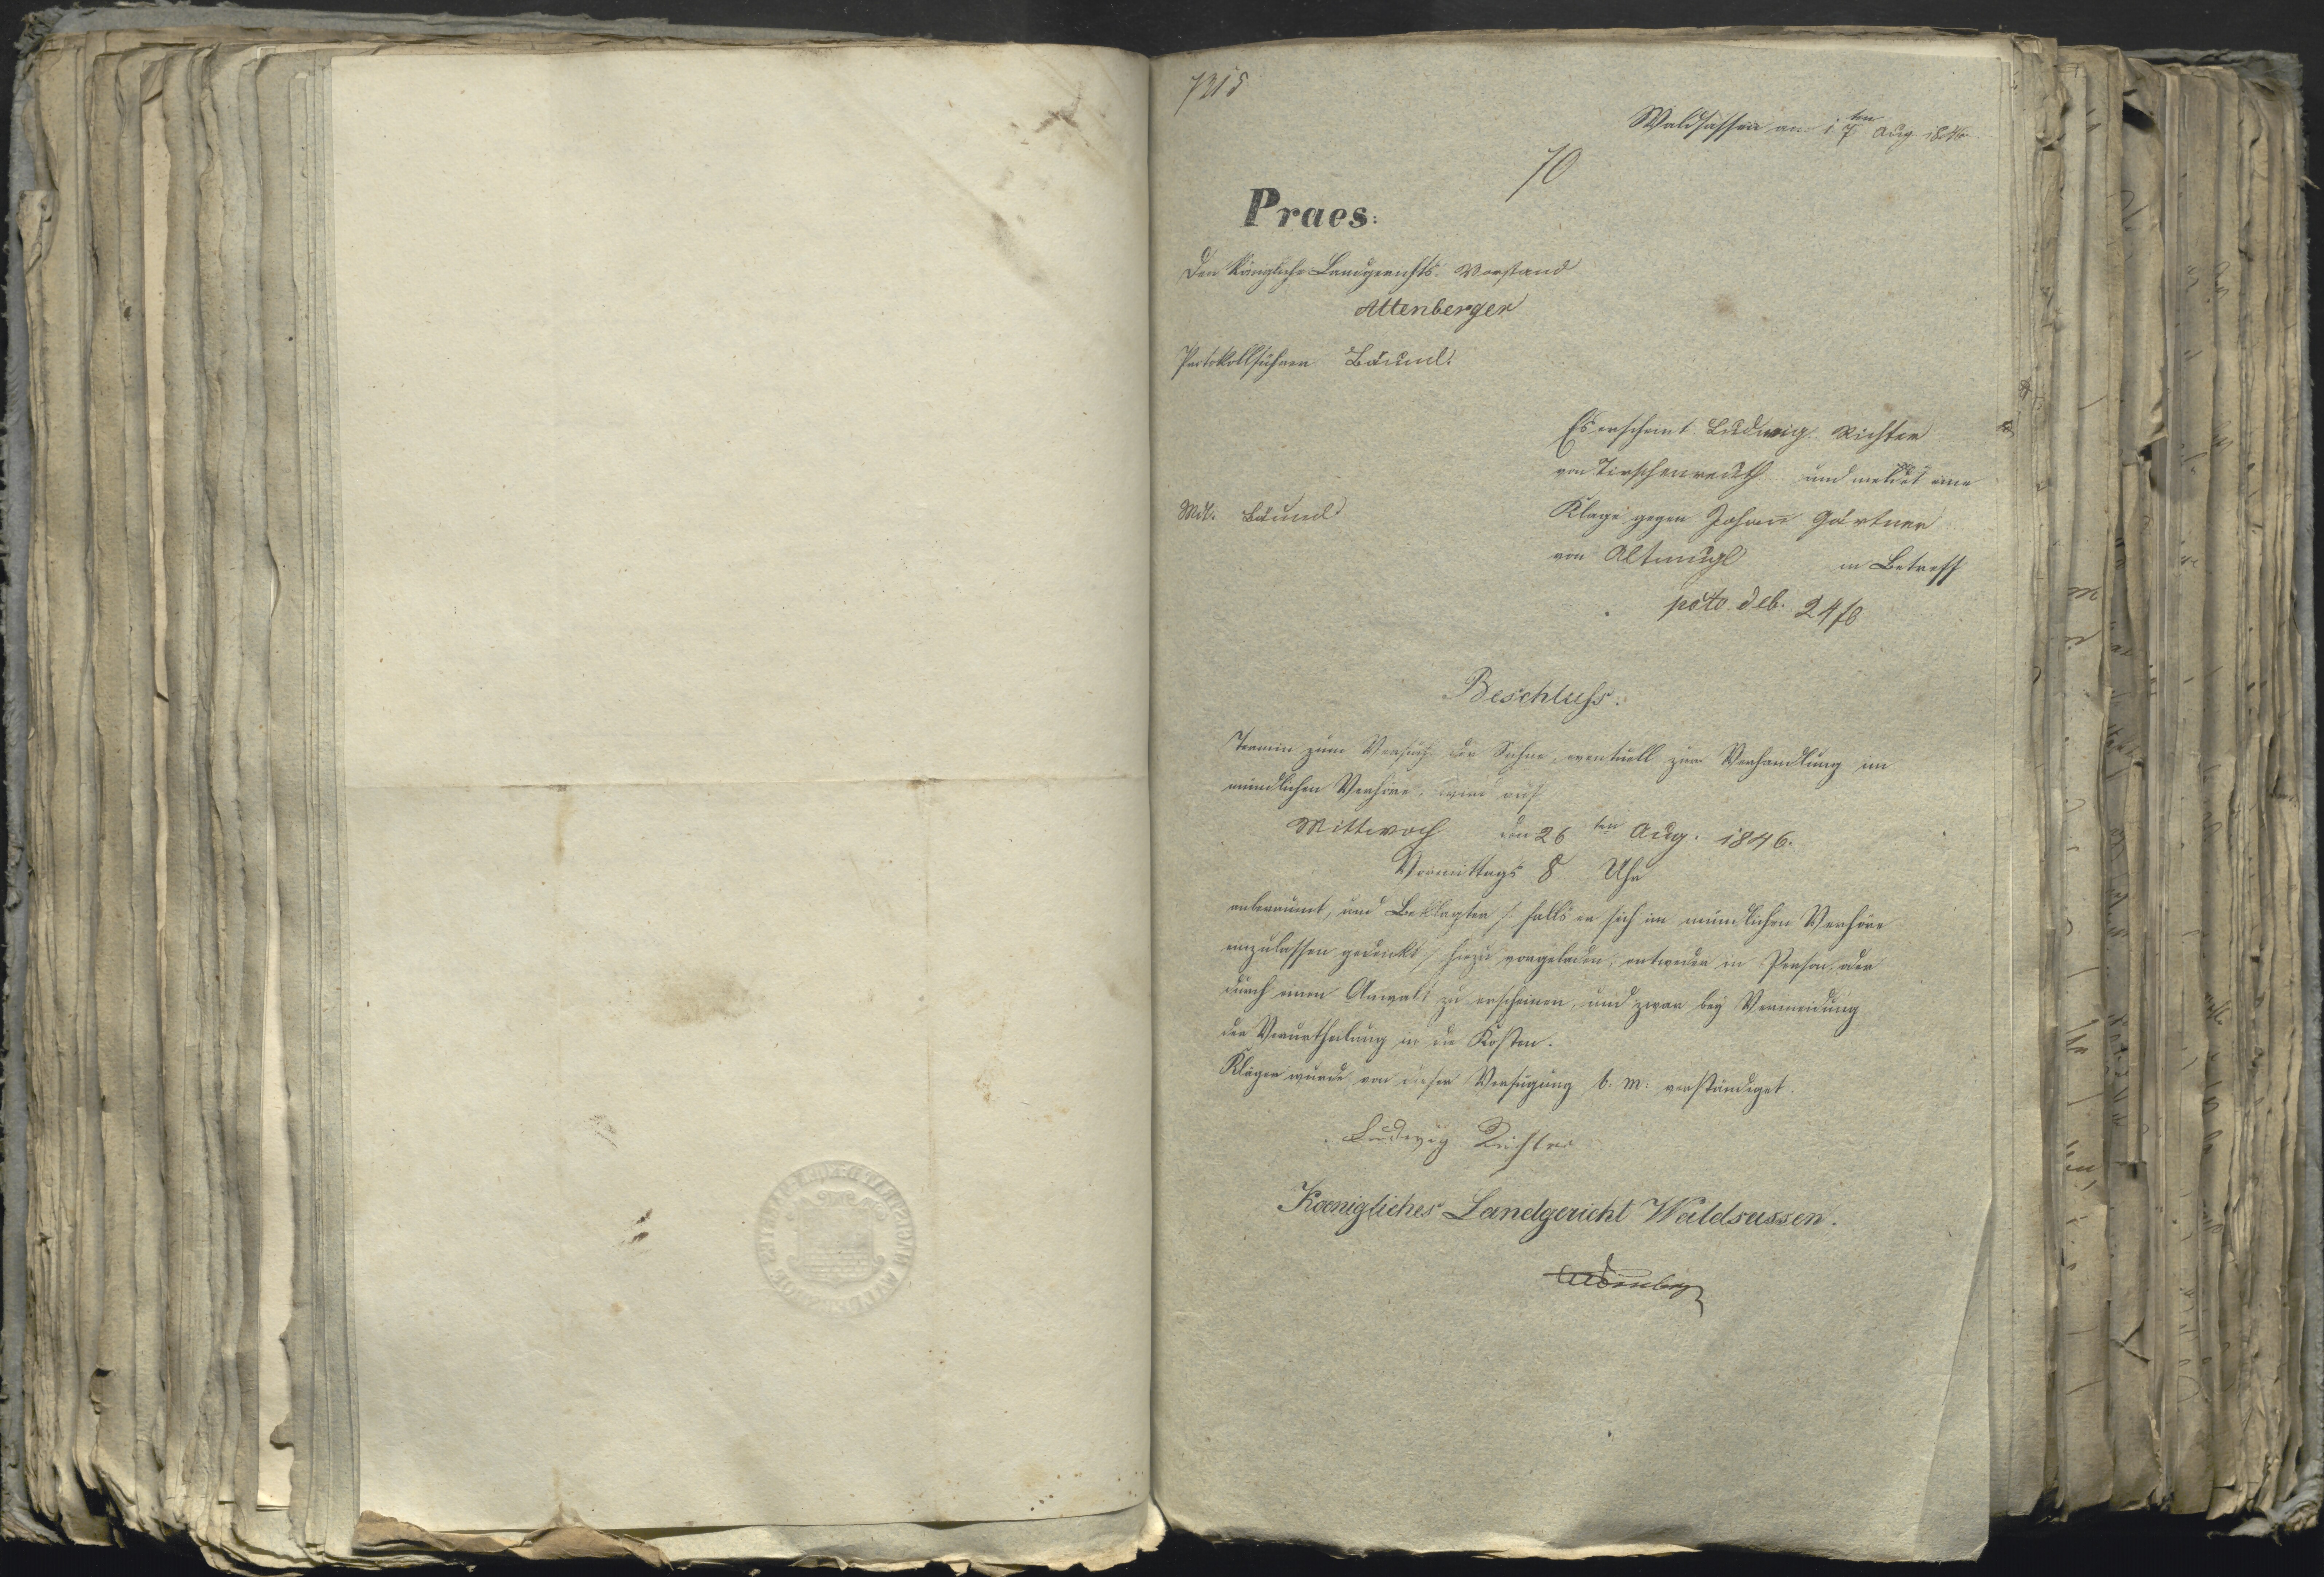 7215
Waldsassen am 17ten Aug 1846
70
Praes:
Der Königliche Landgerichts-Vorstand
Attenberger
Protokollführer Bäuml.
Es erscheint Ludwig Richter
von Tirschenreuth und meldet eine
Klage gegen Johann Gärtner
von Altmugl in Betreff
pcto deb. 24 fl
Bäuml
Beschluss:
Termin zum Versuch der Sühne, eventuell zur Verhandlung im
mündlichen Verhöre, wird auf
Mittwoch den 26ten Aug. 1846.
Vormittags 8 Uhr
anberaumt, und Beklagter /: falls er sich im mündlichen Verhöre
einzulassen gedenkt :/ hiezu vorgeladen, entweder in Person oder
durch einen Anwalt zu erscheinen, und zwar bey Vermeidung
der Verurtheilung in die Kosten.
Kläger wurde von dieser Verfügung b. m. verständiget.
Ludwig Richter
Koenigliches Landgericht Waldsassen.